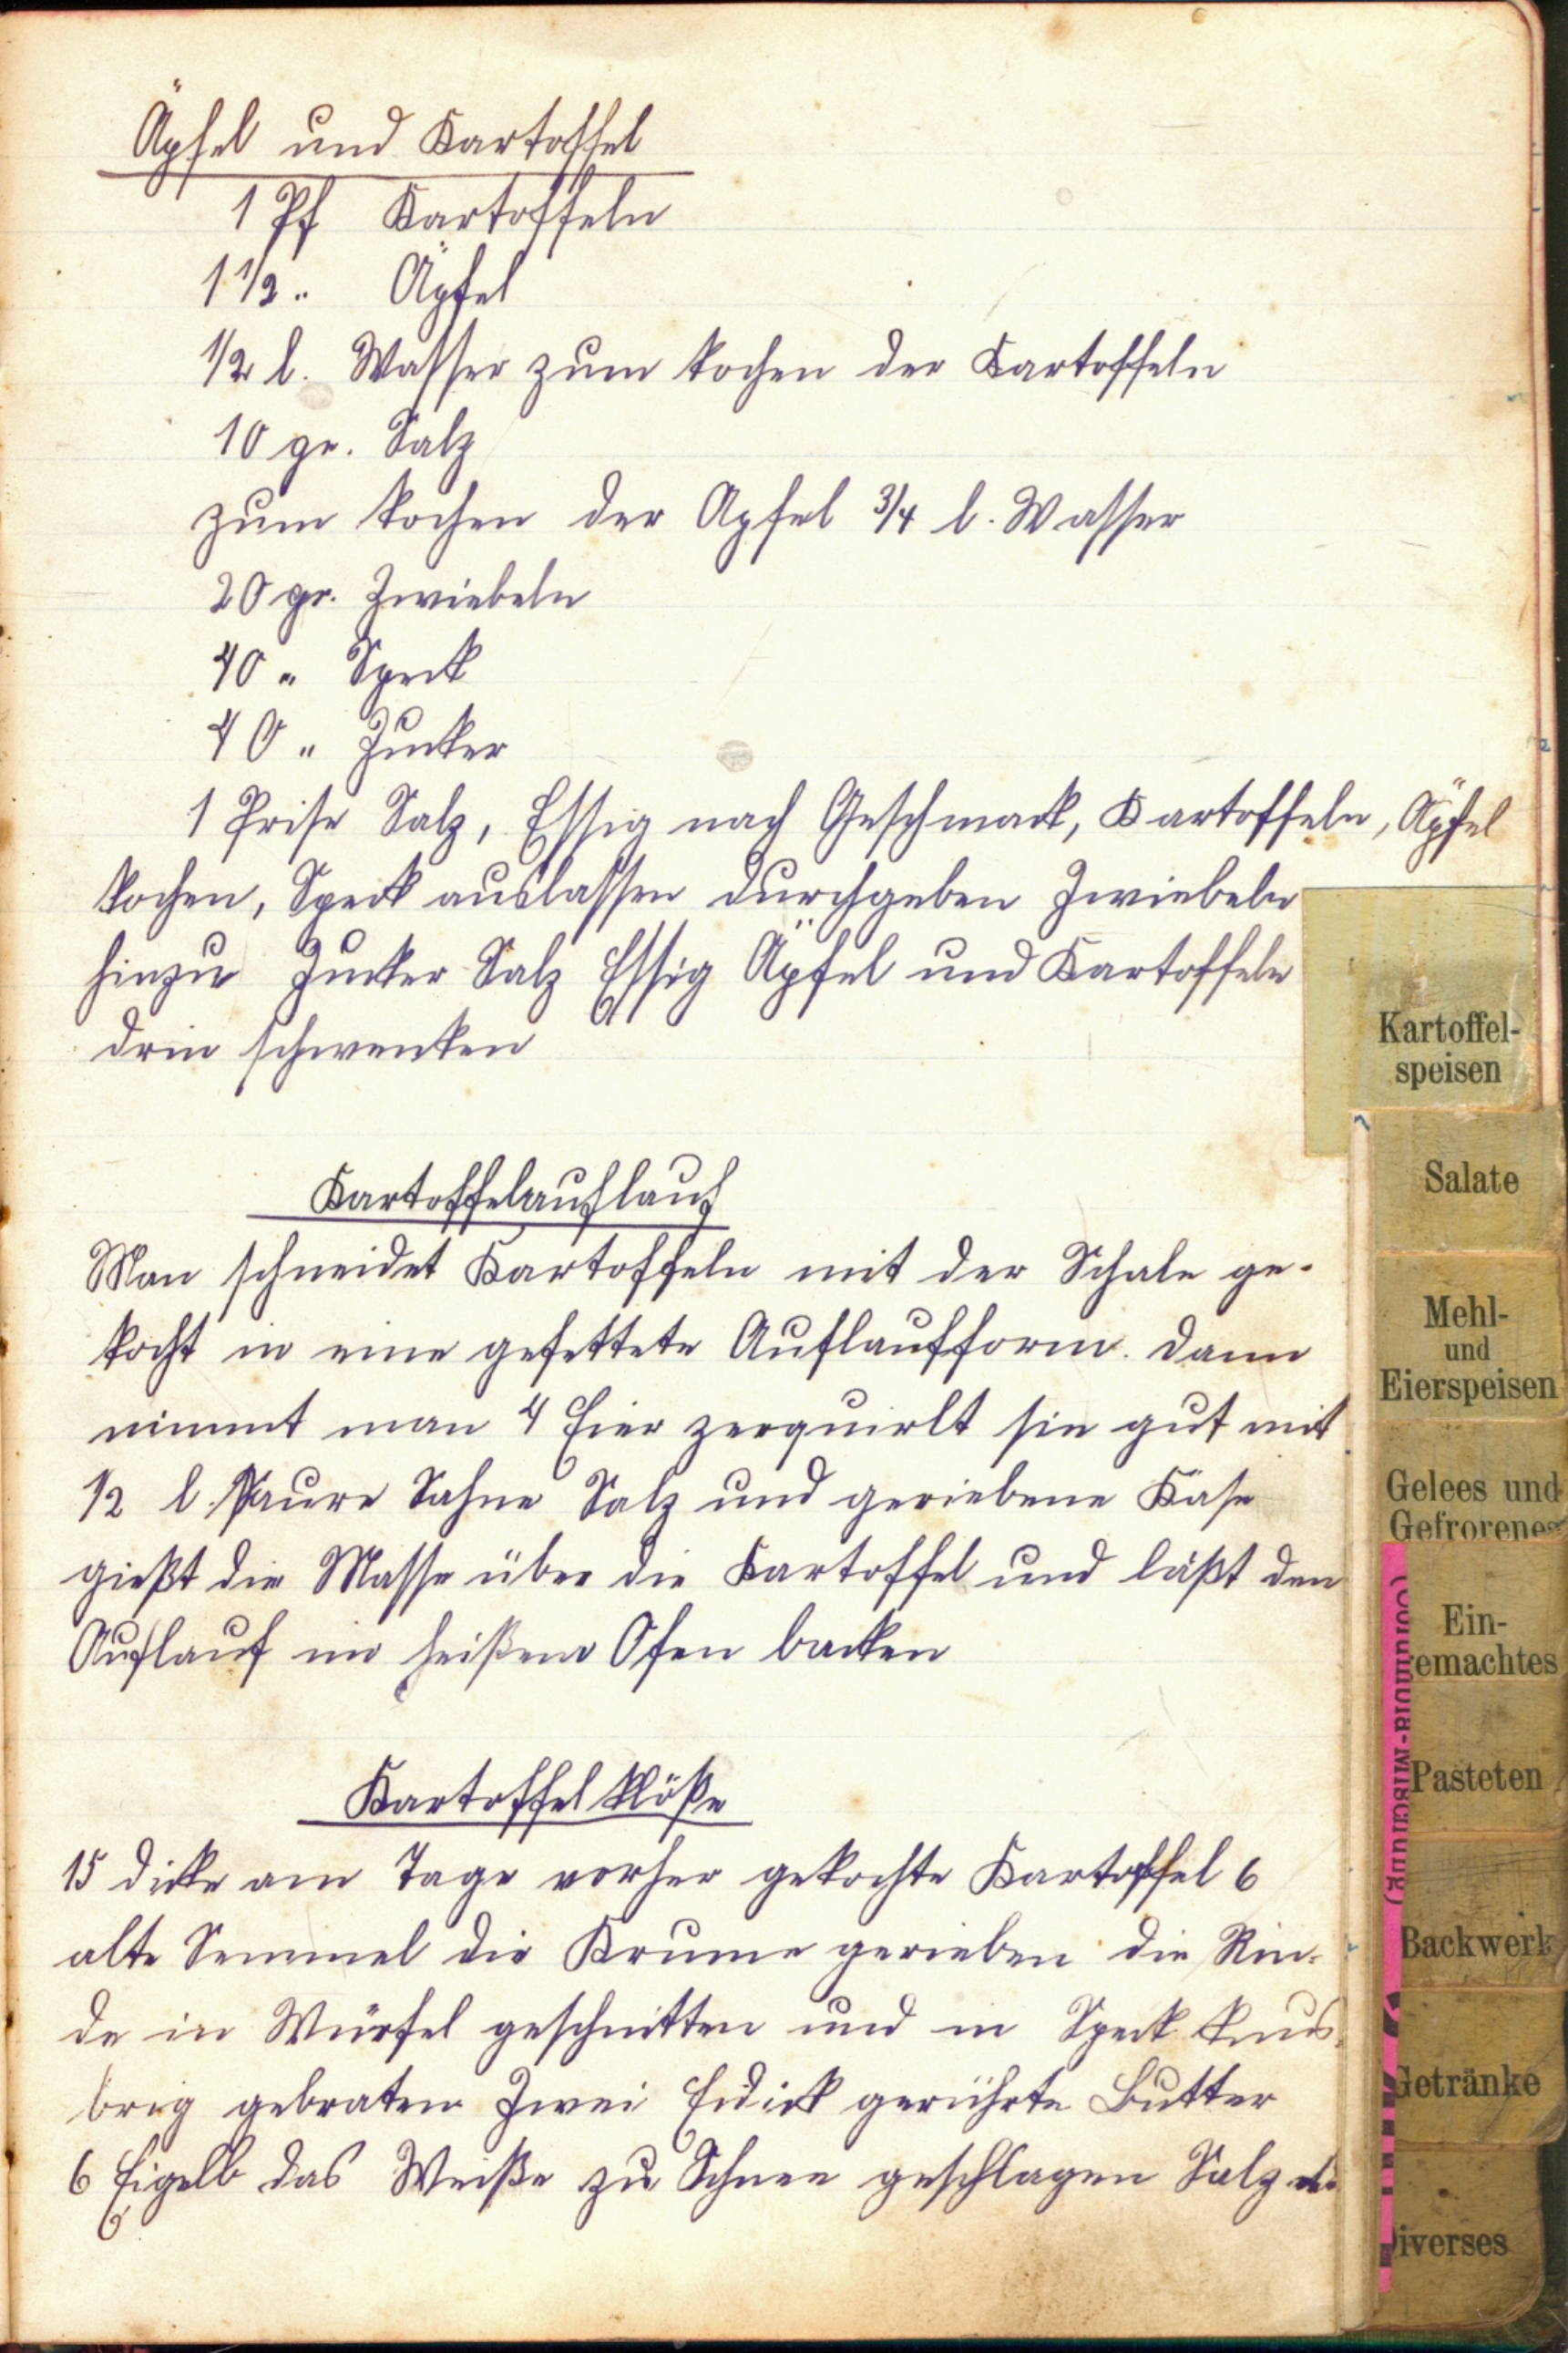 Äpfel und Kartoffel
1 Pf Kartoffeln
1 1/2 " Äpfel
1/2 l. Wasser zum kochen der Kartoffeln
10 gr. Salz
zum kochen der Apfel 3/4 l. Wasser
20 gr. Zwiebeln
40 " Speck
40 " Zucker
1 Prise Salz, Essig nach Geschmack, Kartoffeln, Äpfel
kochen, Speck auslassen durchgeben Zwiebeln
hinzu Zucker Salz Essig Äpfel und Kartoffeln
drin schwenken
Kartoffelauflauf
Man schneidet Kartoffeln mit der Schale ge-
kocht in eine gefettete Auflaufform. dann
nimmt man 4 Eier zerquirlt sie gut mit
1/2 l. Saure Sahne Salz und geriebene Käse
gießt die Masse über die Kartoffel und läßt den
Auflauf im heißem Ofen backen
Kartoffelklöße
15 dicke am Tage vorher gekochte Kartoffel 6
alte Semmel die Krume gerieben die Rin-
de in Würfel geschnitten und in Speck knus-
brig gebraten Zwei Eidick gerührte Butter
6 Eigelb das Weiße zu Schnee geschlagen Salz
Kartoffel-
speisen
Salate
Mehl-
und
Eierspeisen
Gelees und
Gefrorenes
Ein-
gemachtes
Pasteten
Backwerk
Getränke
Diverses